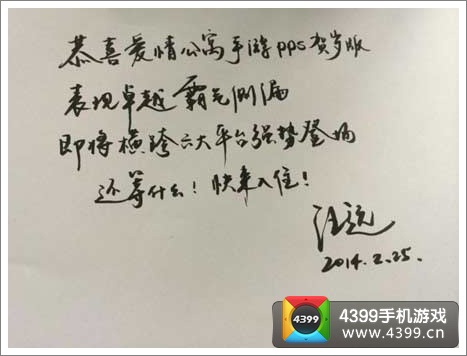 恭喜爱情公寓手游pps贺岁版
表现卓越 霸气侧漏
即将横跨六大平台强势登场
还等什么！快来入住！
汪远
2014.2.25.
4399
4399手机游戏
www.4399.cn